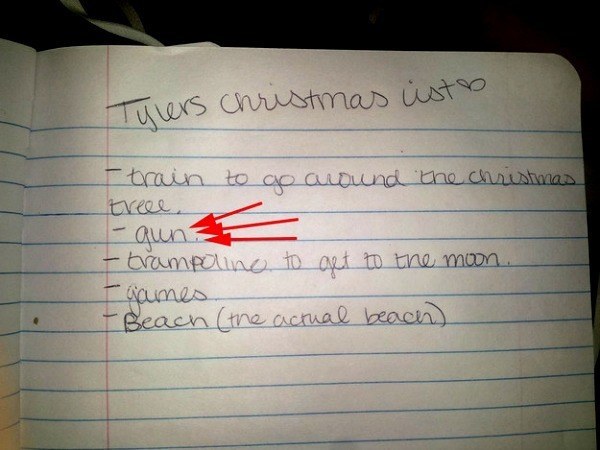 Tylers christmas list♡
- train to go around the christmas
tree.
- gun.
- trampoline to get to the moon.
- games
- Beach (the actual beach)